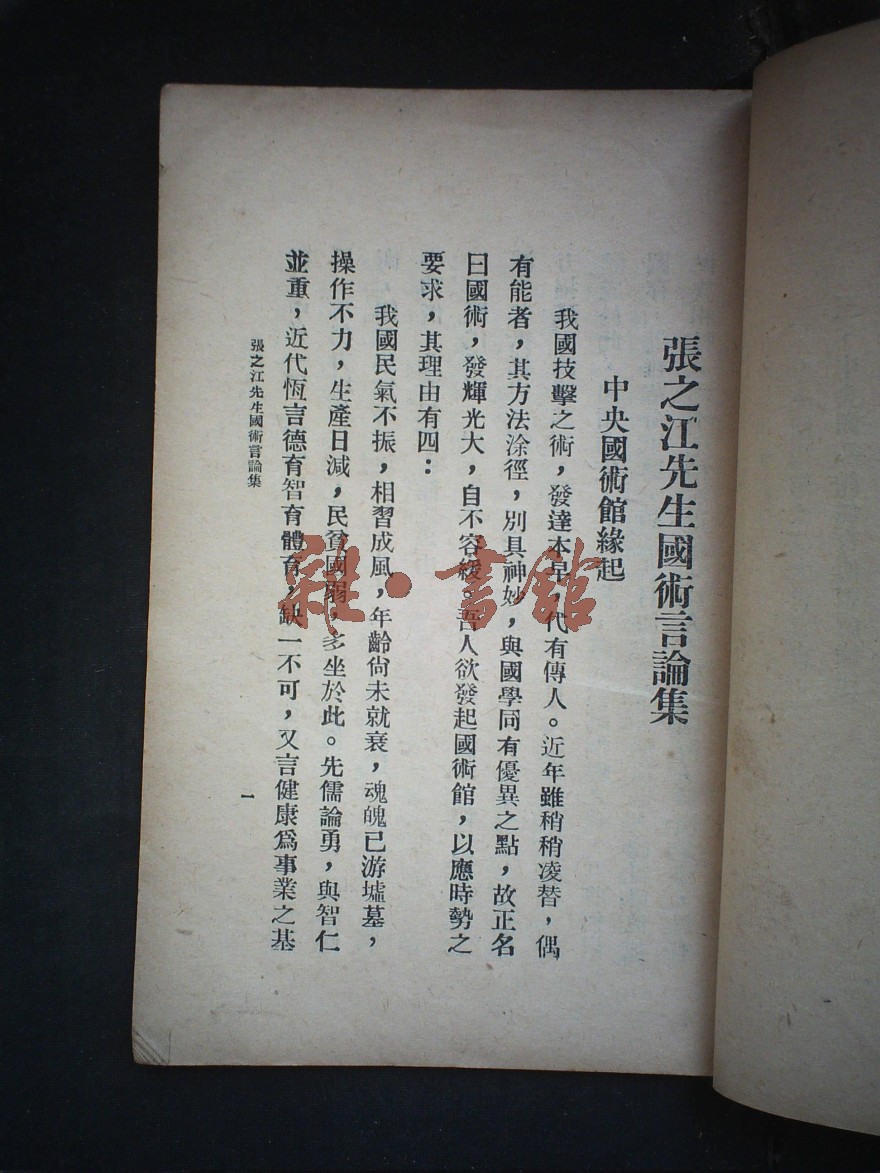 張之江先生國術言論集
中央國術館緣起
我國技擊之術，發達本早，代有傳人。近年雖稍稍凌替，偶
有能者，其方法涂徑，別具神妙，與國學同有優異之點，故正名
曰國術，發輝光大，自不容緩。吾人欲發起國術館，以應時勢之
要求，其理由有四：
我國民氣不振，相習成風，年齡尙未就衰，魂魄已游墟墓，
操作不力，生產日減，民貧國弱，多坐於此。先儒論勇，與智仁
並重，近代恆言德育智育體育，缺一不可，又言健康爲事業之基
張之江先生國術言論集
一
雜·書館